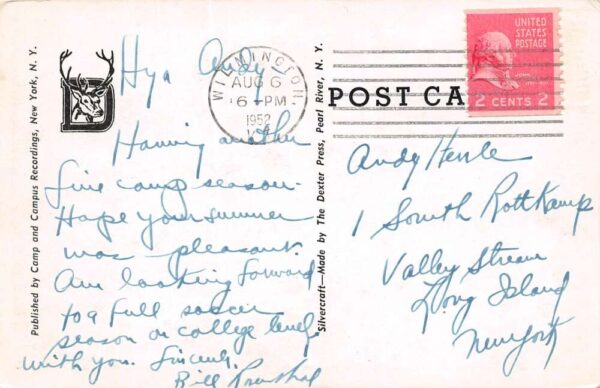 Published by Camp and Campus Recordings, New York, N. Y.
D
Hya Andy
Having another
fine camp season.
Hope your summer
was pleasant.
Am looking forward
to a full soccer
season on college level
with you. Sincerely
Bill
Silvercraft—Made by The Dexter Press, Pearl River, N. Y.
WILMINGTON,
AUG 6
6 - PM
1952
POST CA
UNITED
STATES
POSTAGE
JOHN
2 CENTS 2
Andy
1 South Rottkamp
Valley Stream
Long Island
New York